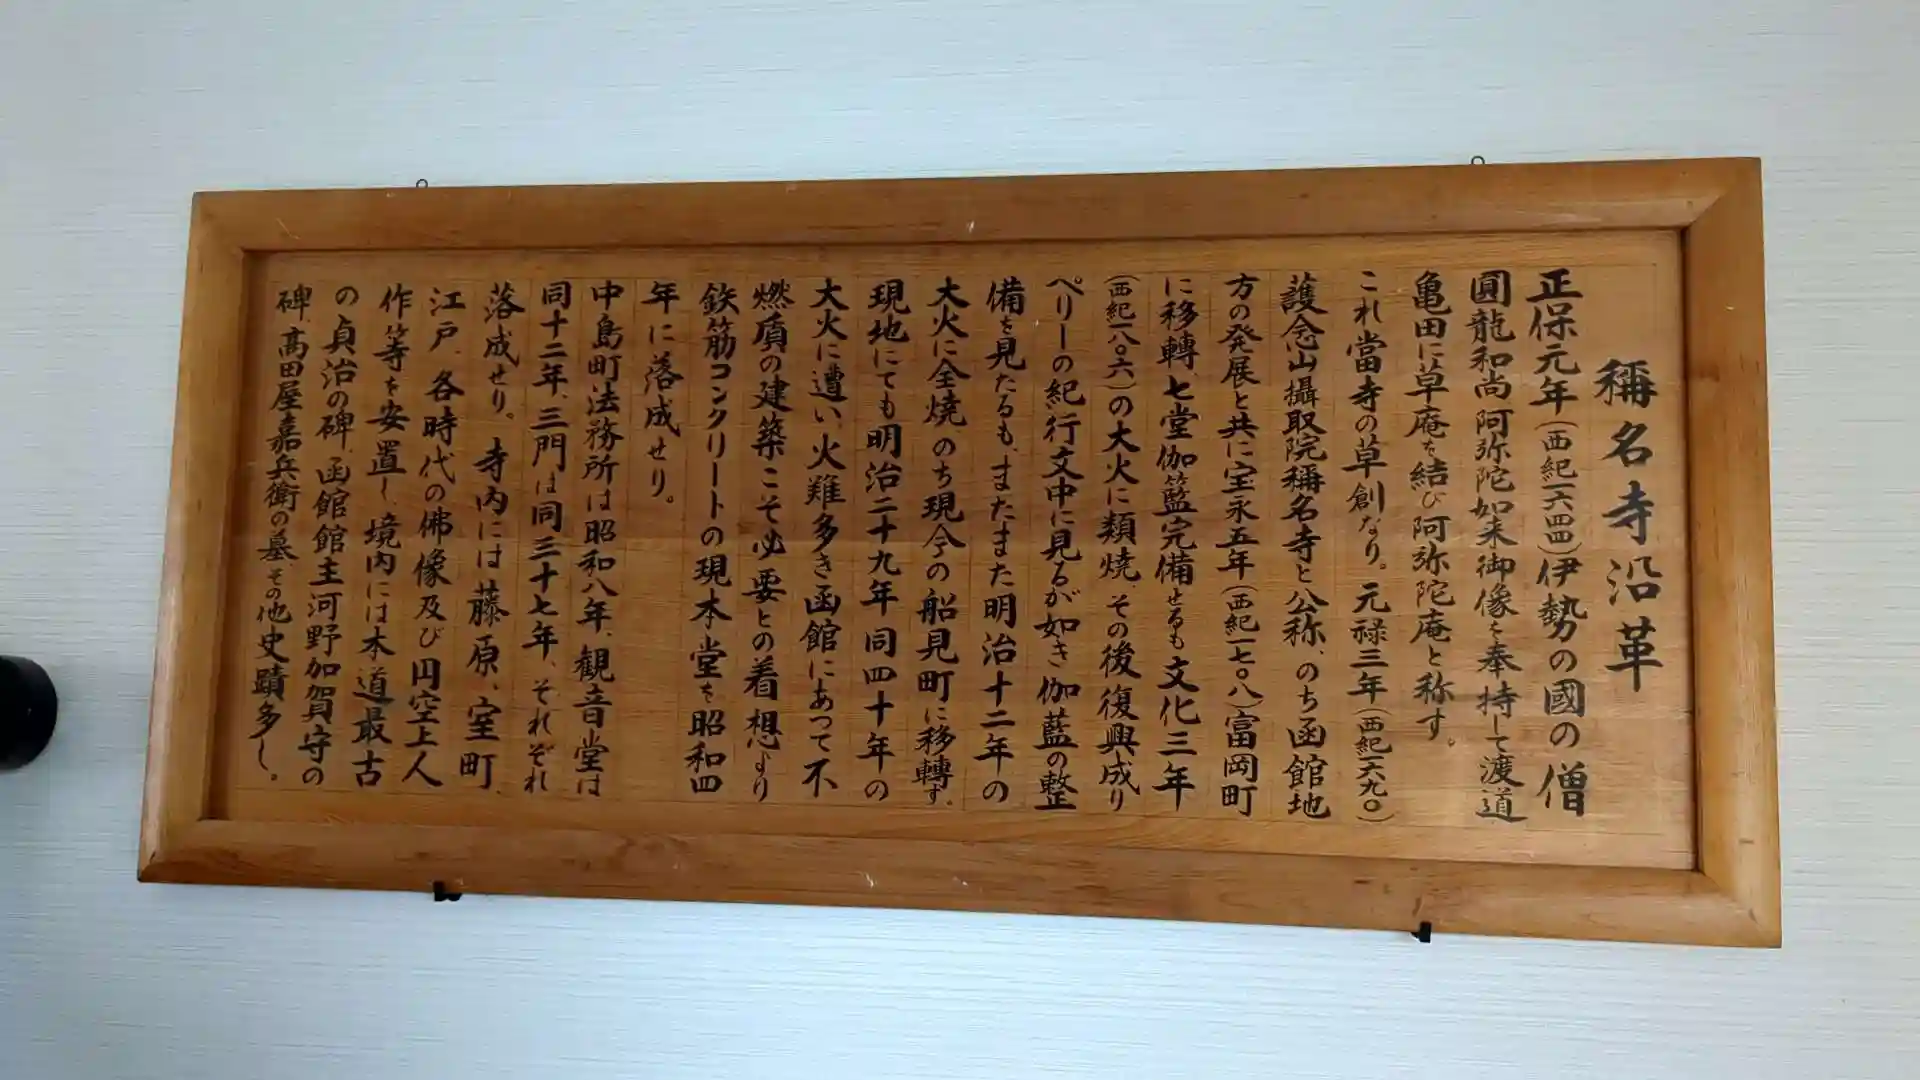 稱名寺沿革
正保元年(西紀一六四四)伊勢の國の僧
圓龍和尚阿弥陀如来御像を奉持して渡道
亀田に草庵を結び阿弥陀庵と称す。
これ當寺の草創なり。元禄三年(西紀一六九〇)
護念山攝取院稱名寺と公称、のち函館地
方の発展と共に宝永五年(西紀一七〇八)富岡町
に移轉七堂伽籃完備せるも文化三年
(西紀一八〇六)の大火に類焼、その後復興成り
ペリーの紀行文中に見るが如き伽藍の整
備を見たるも、またまた明治十二年の
大火に全焼のち現今の船見町に移轉す。
現地にても明治二十九年同四十年の
大火に遭い、火難多き函館にあつて不
燃質の建築こそ必要との着想より
鉄筋コンクリートの現本堂を昭和四
年に落成せり。
中島町法務所は昭和八年、観音堂は
同十二年、三門は同三十七年、それぞれ
落成せり。寺内には藤原、室町、
江戸、各時代の佛像及び円空上人
作等を安置し、境内には本道最古
の貞治の碑、函館館主河野加賀守の
碑、高田屋嘉兵衛の墓その他史蹟多し。